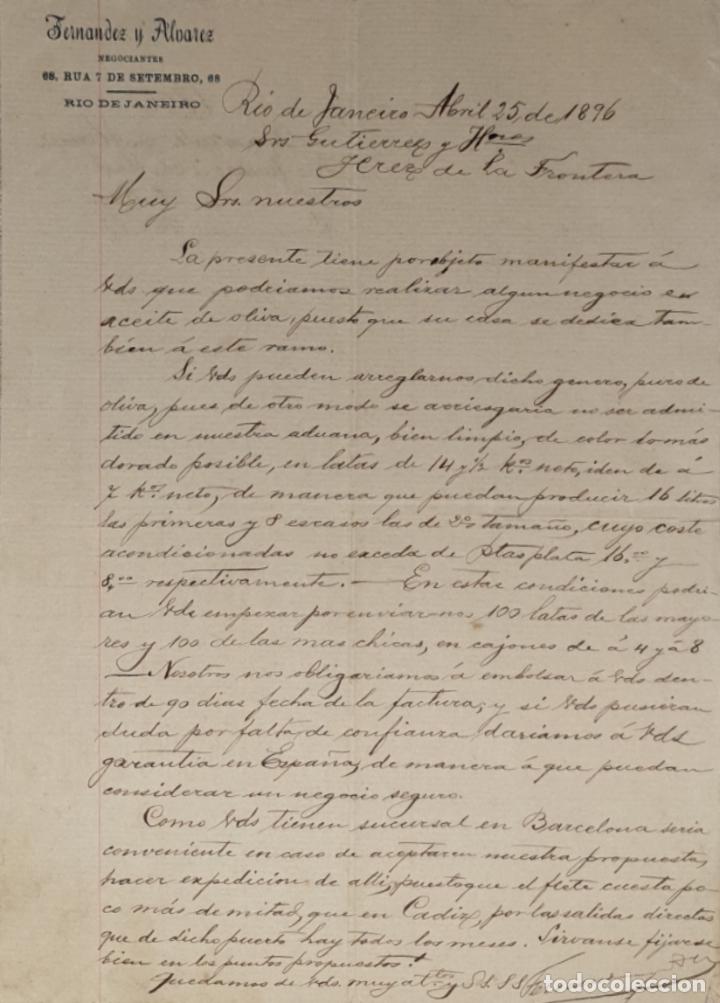 Fernandez y Alvarez
NEGOCIANTES
68, RUA 7 DE SETEMBRO, 68
RIO DE JANEIRO
Rio de Janeiro Abril 25, de 1896
Srs Gutierrez y Hnos
Jerez de la Frontera
Muy Srs. nuestros
La presente tiene por objeto manifestar á
Vds que podriamos realizar algun negocio en
aceite de oliva, puesto que su casa se dedica tam-
bien á este ramo.
Si Vds pueden arreglarnos dicho genero, puro de
oliva, pues de otro modo se arriesgaria no ser admi-
tido en nuestra aduana, bien limpio, de color lo más
dorado posible, en latas de 14 y 1/2 k.os neto, iden de á
7 k.os neto, de manera que puedan producir 16 litros
las primeras y 8 escasos las de 2º tamaño, cuyo coste
acondicionadas no exceda de Ptas plata 16,00 y
8,00 respectivamente. — En estas condiciones podri-
an Vds empezar por enviar-nos 100 latas de las mayo-
res y 100 de las mas chicas, en cajones de á 4 y á 8
— Nosotros nos obligariamos á embolsar á Vds den-
tro de 90 dias fecha de la factura; y si Vds pusieran
duda por falta de confianza dariamos á Vds
garantia en España, de manera á que puedan
considerar un negocio seguro.
Como Vds tienen sucursal en Barcelona seria
conveniente en caso de aceptaren nuestra propuesta,
hacer expedicion de alli, puesto que el flete cuesta po-
co más de mitad, que en Cadiz, por las salidas directas
que de dicho puerto hay todos los meses. Sirvanse fijarse
bien en los puntos propuestos.
Quedamos de Vds. muy attos y S. S. S. S.
todocoleccion